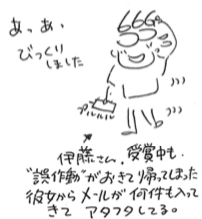 あっあ、
びっくり
しました
プルルル
伊藤さん、受賞中も、
"誤作動"がおきて帰ってしまった
彼女からメールが何件も入って
きてアタフタしてる。